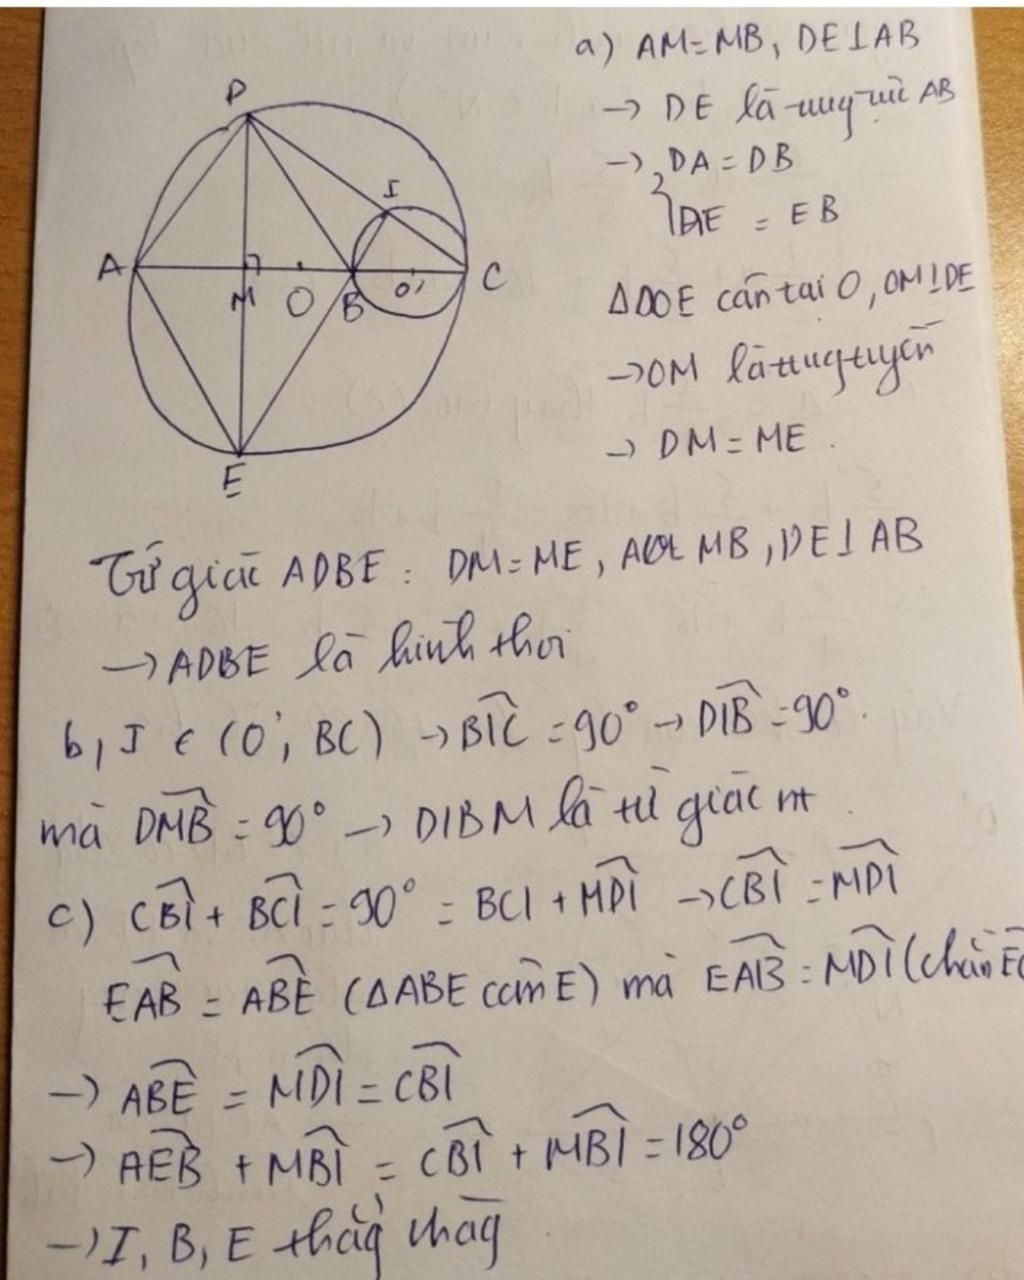 a) AM=MB, DE⊥AB
→ DE là trung trực AB
→ DA = DB
AE = EB
ΔDOE cân tại O, OM⊥DE
→OM là trung tuyến
→ DM = ME.
D
I
A
M
O
B
O'
C
E
Tứ giác ADBE: DM=ME, MB, DE⊥AB
→ADBE là hình thoi
b, I ∈ (O', BC) → \widehat{BIC} = 90° → \widehat{DIB} = 90°.
mà \widehat{DMB} = 90° → DIBM là tứ giác nt.
c) \widehat{CBI} + \widehat{BCI} = 90° = BCI + \widehat{MDI} → \widehat{CBI} = \widehat{MDI}
\widehat{EAB} = \widehat{ABE} (ΔABE cân E) mà \widehat{EAB} = \widehat{MDI} (chắn
→ \widehat{ABE} = \widehat{MDI} = \widehat{CBI}
→ \widehat{AEB} + \widehat{MBI} = \widehat{CBI} + \widehat{MBI} = 180°
→ I, B, E thẳng hàng